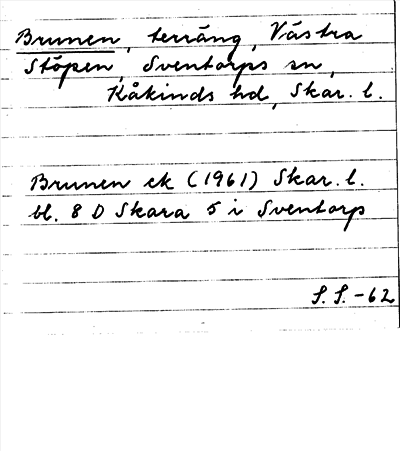 Brunen, terräng, Västra
Stöpen, Sventorps sn,
Kåkinds hd, Skar. l.
Brunen ek (1961) Skar. l.
bl. 8 D Skara 5 i Sventorp
S. S. -62